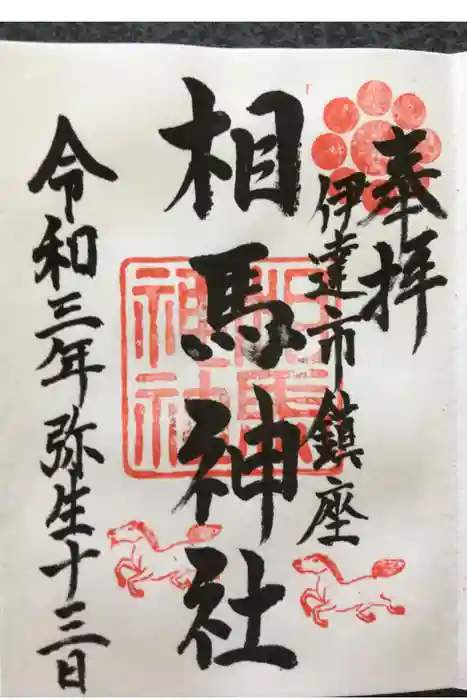 奉拝
伊達市鎮座
相馬神社
令和三年弥生十三日
相馬
神社